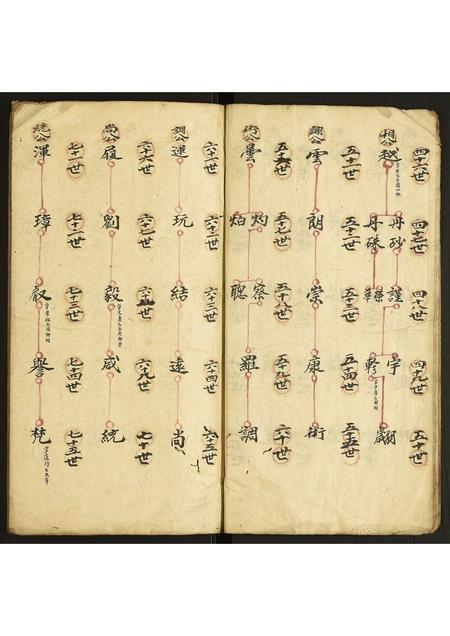 四十六世 四十七世 四十八世 四十九世 五十世
丹砂 謹 宇
相公 越 丹硃 軫 翩
五十一世 五十二世 五十三世 五十四世 五十五世
翩公 雲 朗 崇 康 術
五十六世 五十七世 五十八世 五十九世 六十世
灼 察
術公 曇 焰 聰 羅 調
六十一世 六十二世 六十三世 六十四世 六十五世
調公 運 玩 結 遠 尚
六十六世 六十七世 六十八世 六十九世 七十世
尚公 履 劉 毅 威 統
七十一世 七十二世 七十三世 七十四世 七十五世
統公 渾 璋 叡 譽 梵